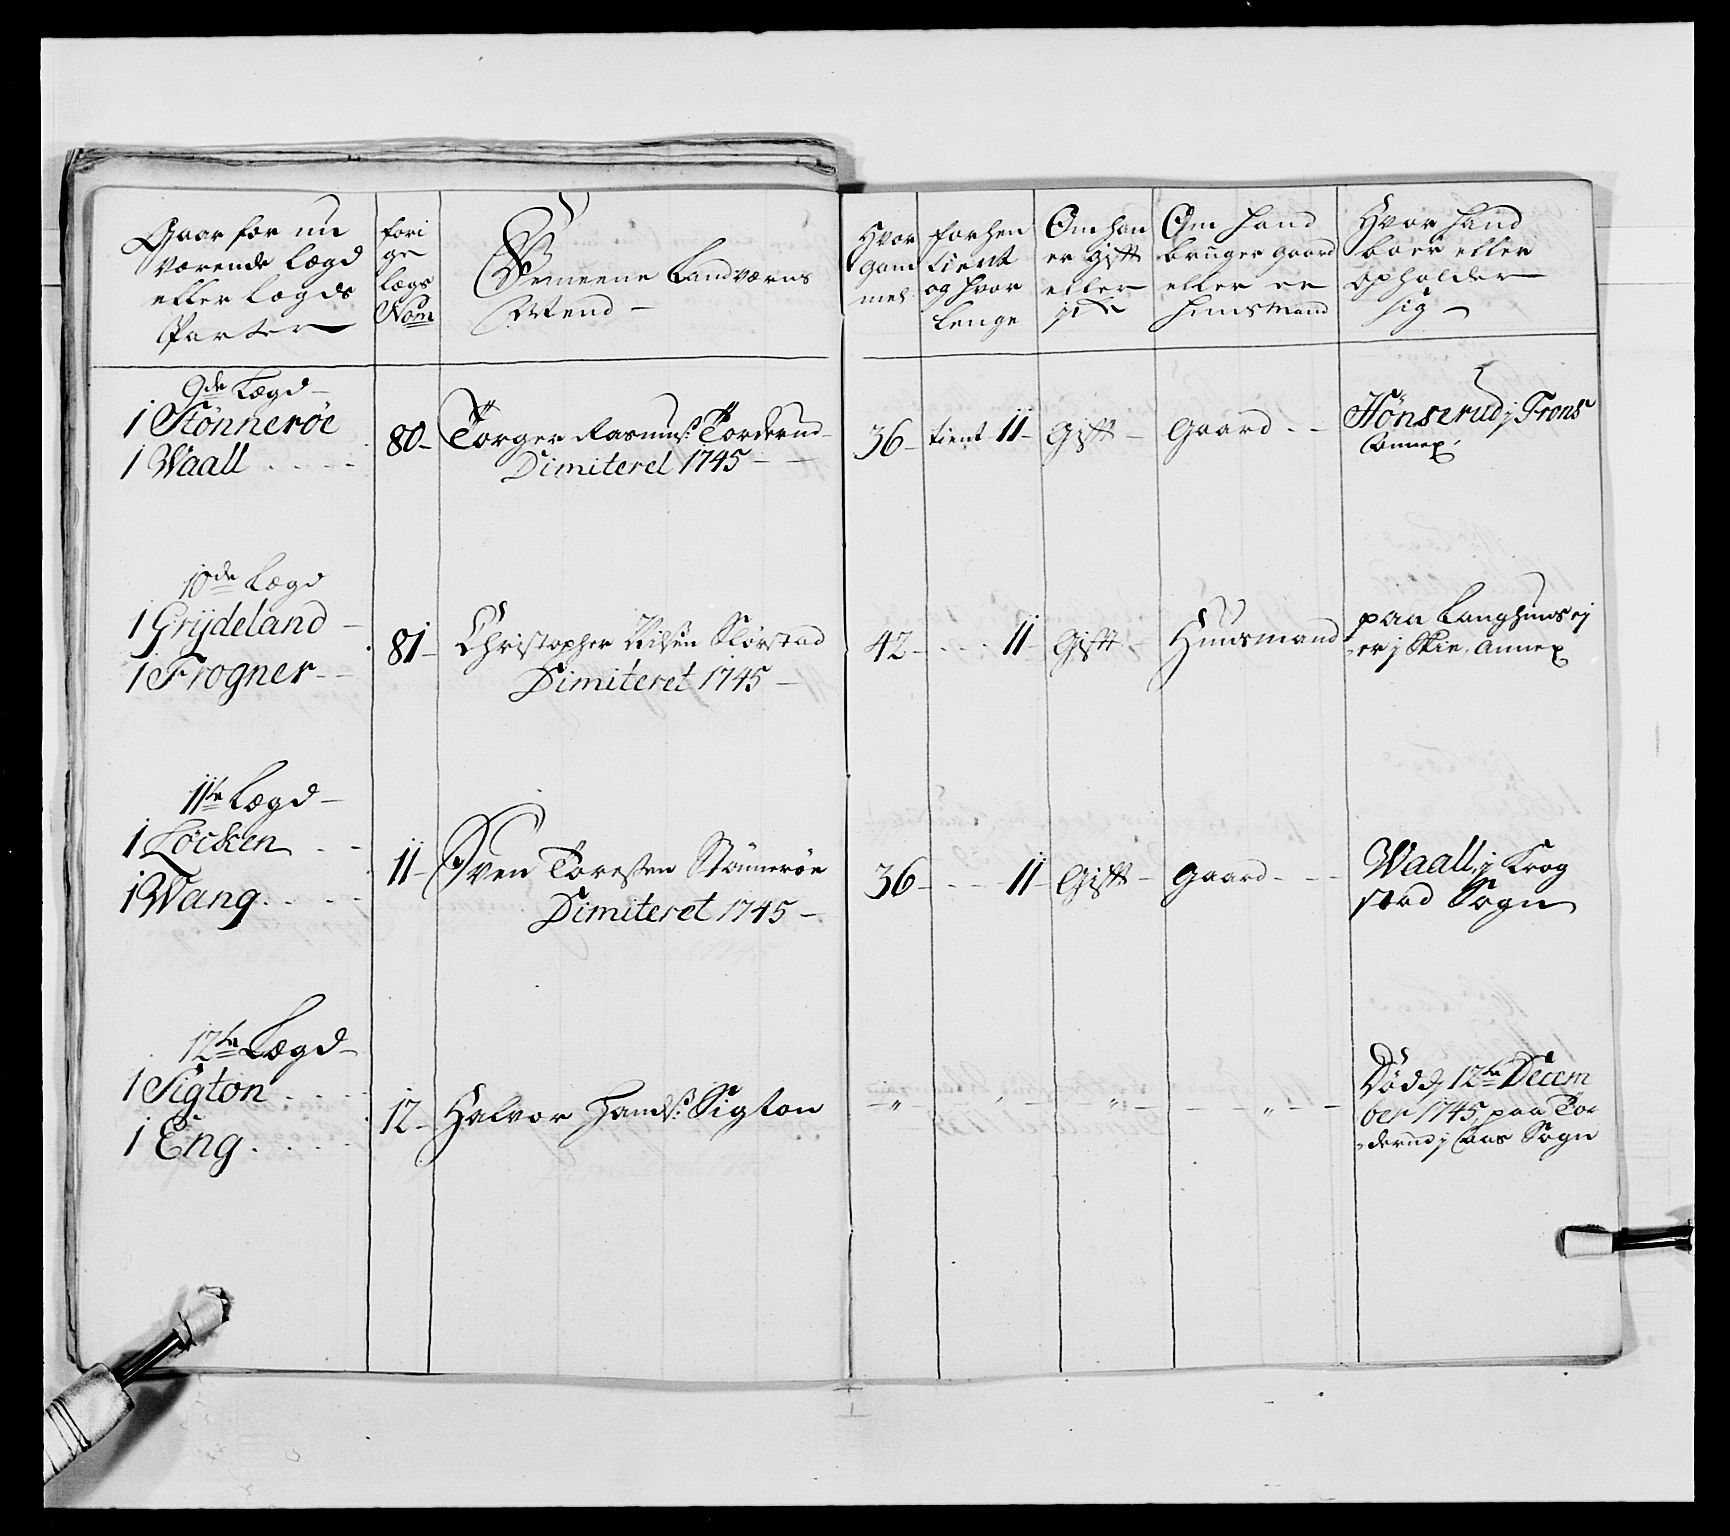 Gaar for nu
værende Lægd
eller Lægds
Parter
fori
ge
Lægs
Nom
Gemeene Landværns
Mend –
Hvor
gam
mel
forhen
tient
og hvor
lenge
Om han
er gift
eller
Om Hand
bruger gaard
eller er
huusmand
Hvor Hand
boer eller
opholder
sig –
9de Lægd –
1 Stønnerøe
1 Waall . . . .
80 –
Torger Rasmus: Torderud –
Dimiteret 1745 – –
36 – tient 11 – Gift – Gaard – –
Hønserud j Frons
Annex.
10de Lægd
1 Grydeland –
1 Frogner – –
81 –
Christopher Nilsen Slørstad
Dimiteret 1745 –
42 – . . . 11 – Gift – Huusmand
paa Langhuus ej
er j Skie, Annex
11te Lægd –
1 Løcken – –
1 Wang . . . .
11 –
Sven Toresen Stønnerøe
Dimiteret 1745 –
36 – – – 11 – Gift – Gaard – – –
Waall, j Krog
stad Sogn
12te Lægd –
1 Sigton . . . .
1 Eng . . . .
12 –
Halvor Hands: Sigton
Død d, 12te Decem
ber 1745, paa Tor
derud j Aas Sogn